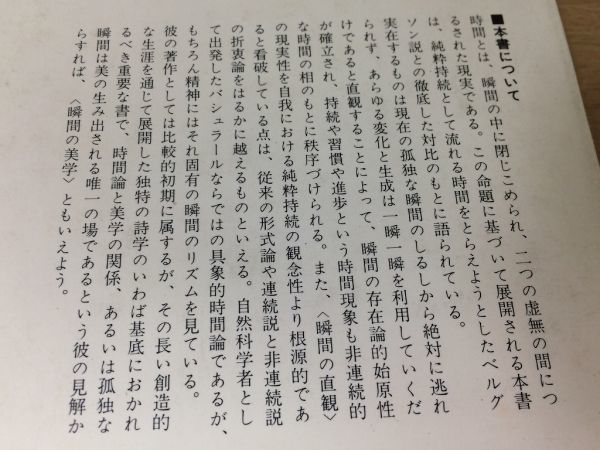 ■本書について
時間とは、瞬間の中に閉じこめられ、二つの虚無の間につ
るされた現実である。この命題に基づいて展開される本書
は、純粋持続として流れる時間をとらえようとしたベルグ
ソン説との徹底した対比のもとに語られている。
実在するものは現在の孤独な瞬間のしるしから絶対に逃れ
られず、あらゆる変化と生成は一瞬一瞬を利用していくだ
けであると直観することによって、瞬間の存在論的始原性
が確立され、持続や習慣や進歩という時間現象も非連続的
な時間の相のもとに秩序づけられる。また、〈瞬間の直観〉
の現実性を自我における純粋持続の観念性より根源的であ
ると看破している点は、従来の形式論や連続説と非連続説
の折衷論をはるかに越えるものといえる。自然科学者とし
て出発したバシュラールならではの具象的時間論であるが、
もちろん精神にはそれ固有の瞬間のリズムを見ている。
彼の著作としては比較的初期に属するが、その長い創造的
な生涯を通じて展開した独特の詩学のいわば基底におかれ
るべき重要な書で、時間論と美学の関係、あるいは孤独な
瞬間は美の生み出される唯一の場であるという彼の見解か
らすれば、〈瞬間の美学〉ともいえよう。